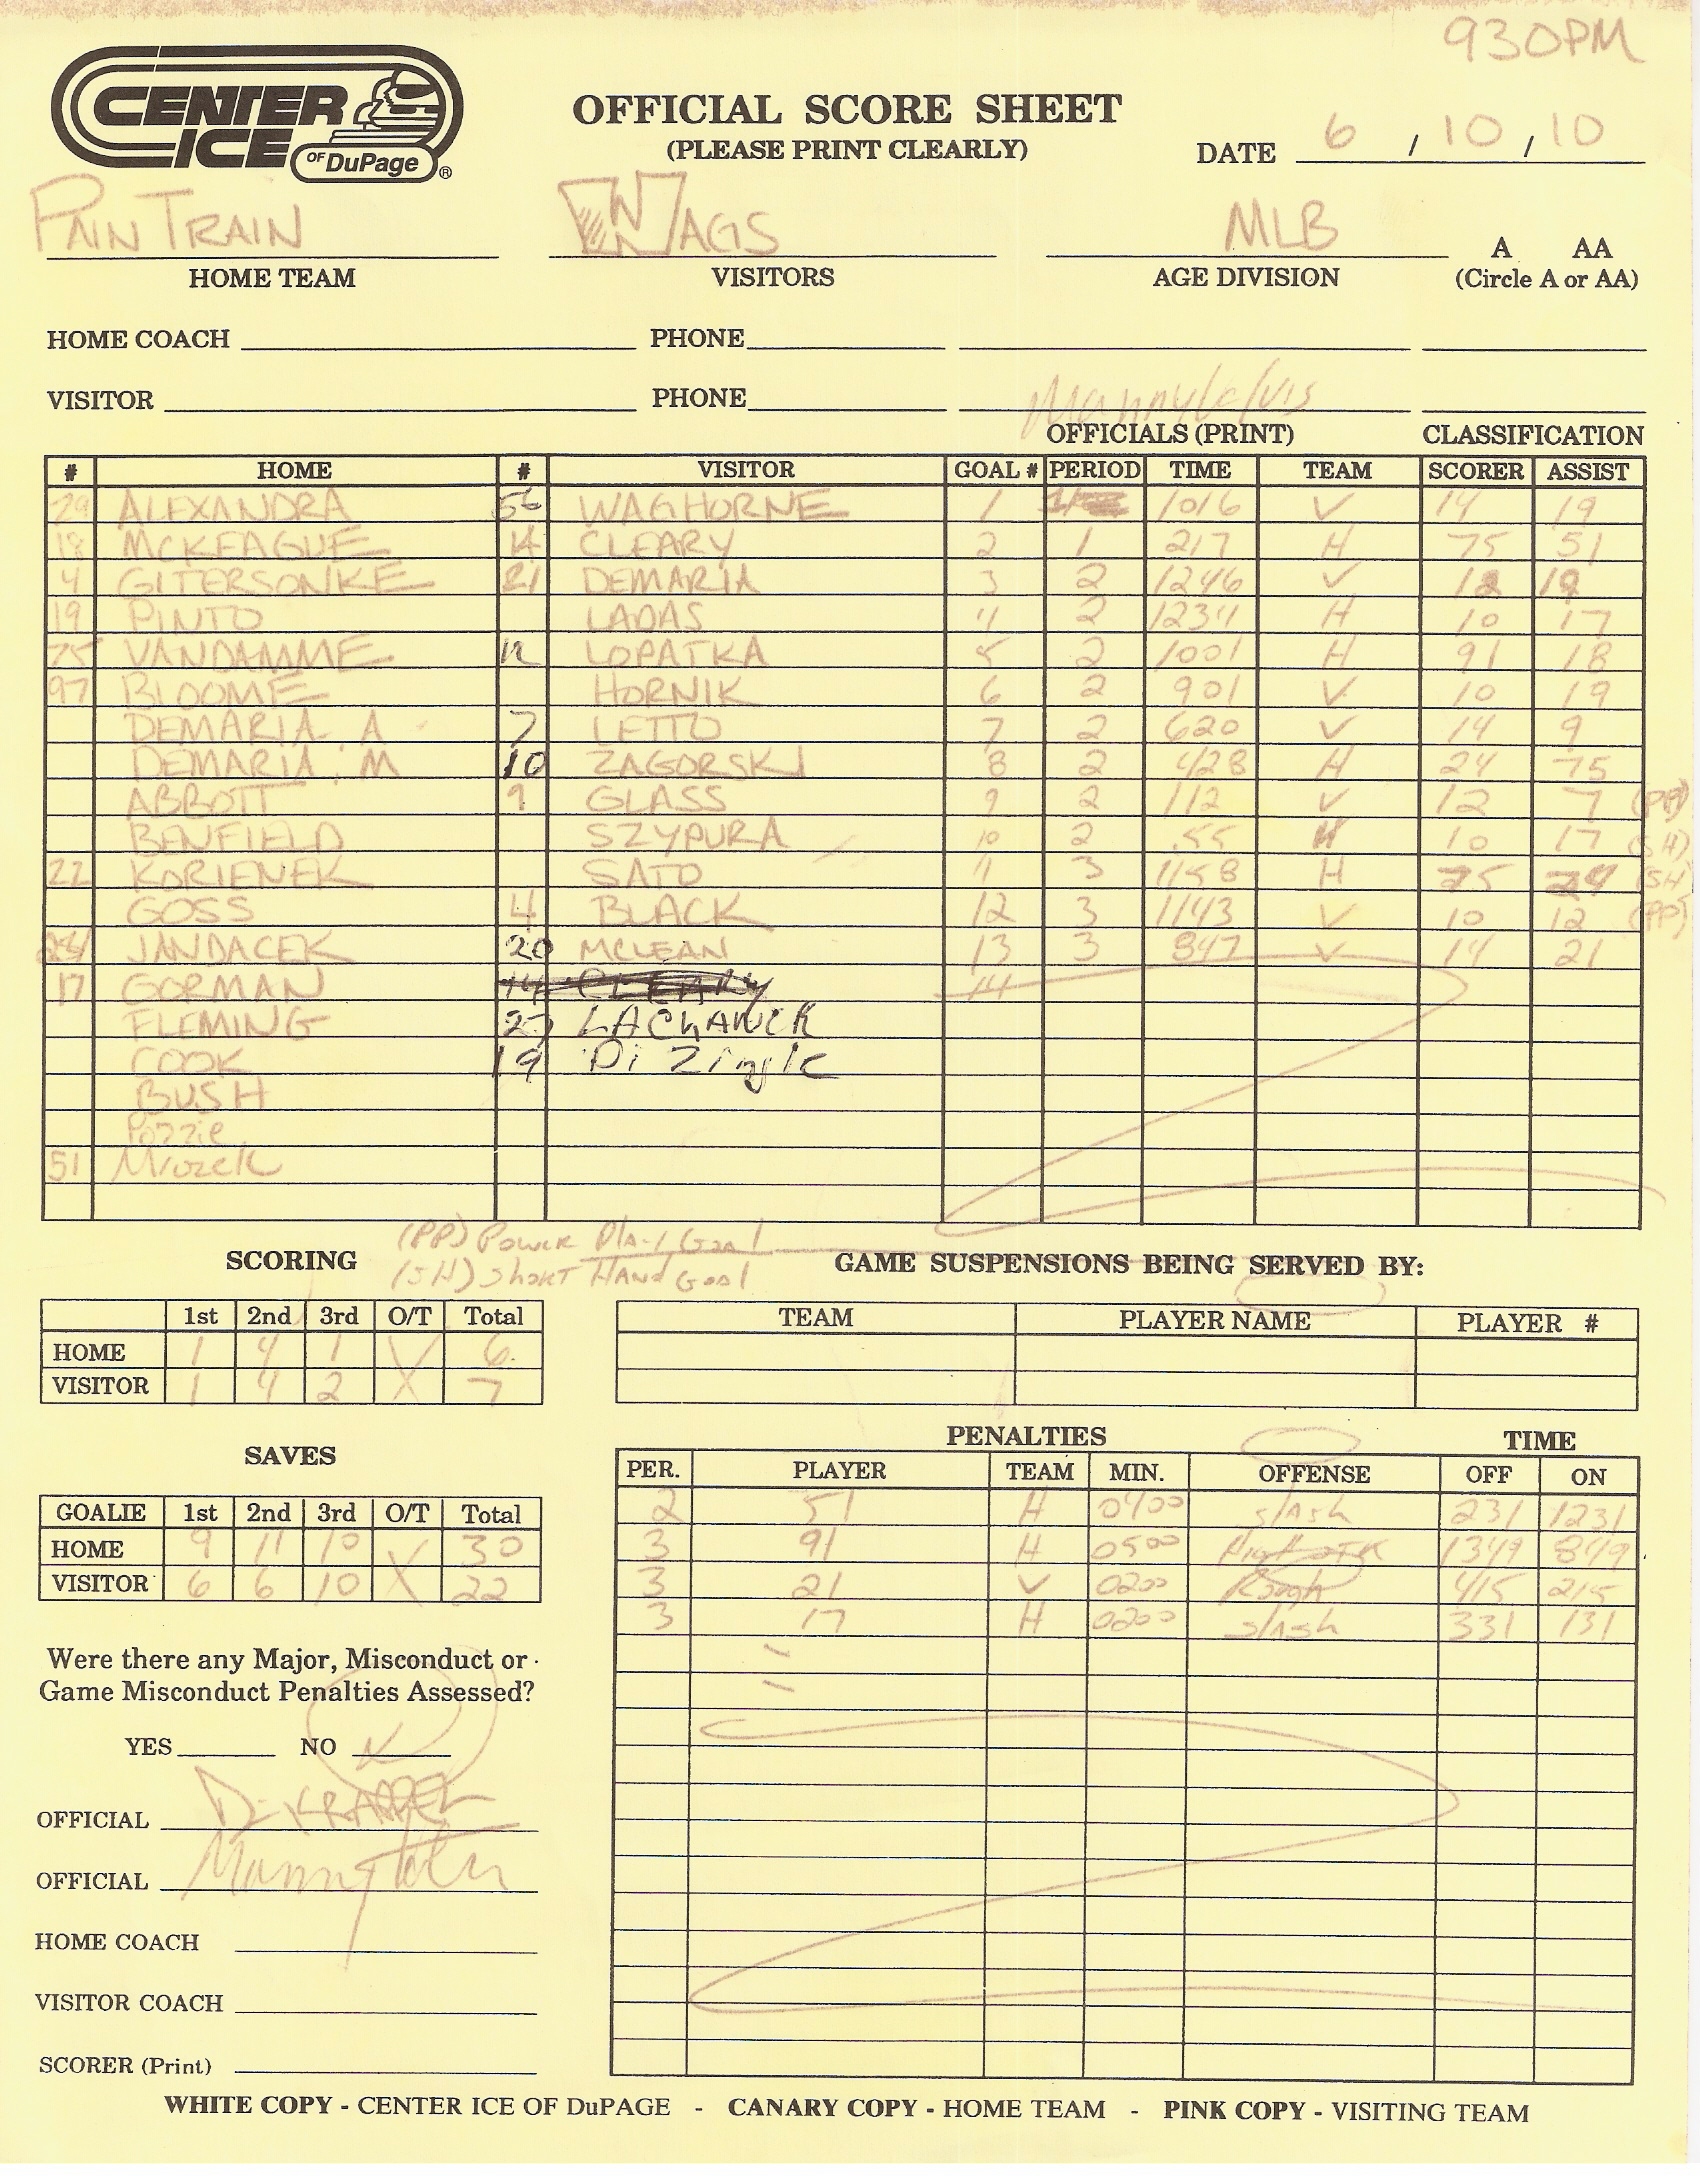 930PM
CENTER ICE OF DuPage ®
OFFICIAL SCORE SHEET
(PLEASE PRINT CLEARLY)
DATE 6 / 10 / 10
PAIN TRAIN WAGS MLB A AA
HOME TEAM VISITORS AGE DIVISION (Circle A or AA)
HOME COACH PHONE
VISITOR PHONE
OFFICIALS (PRINT) CLASSIFICATION
# HOME # VISITOR GOAL # PERIOD TIME TEAM SCORER ASSIST
29 ALEXANDRA 56 WAGHORNE 1 1 1016 V 14 19
18 MCKEAGUE 14 CLEARY 2 1 217 H 75 51
4 GITERSONKE 21 DEMARIA 3 2 1246 V 12 19
19 PINTO LADAS 4 2 1234 H 10 17
75 VANDAMME 12 LOPATKA 5 2 1001 H 91 18
97 BLOOME HORNIK 6 2 901 V 10 19
DEMARIA, A 7 LETTO 7 2 620 V 14 9
DEMARIA, M 10 ZAGORSKI 8 2 428 H 24 75
ABBOTT 9 GLASS 9 2 112 V 12 7 (PP)
BENFIELD SZYPURA 10 2 .55 H 10 17 (SH)
22 KORIENEK SATO 11 3 1158 H 75 24 (SH
GOSS 4 BLACK 12 3 1143 V 10 12 (PP)
JANDACEK 20 MCLEAN 13 3 847 V 14 21
17 GORMAN 14 CLEARY 14
FLEMING 27 LACHAWCR
COOK 19 Di Zingle
BUSH
Pozzie
51 Mrozek
(PP) Power Play Goal
(SH) Short Hand Goal
SCORING GAME SUSPENSIONS BEING SERVED BY:
1st 2nd 3rd O/T Total TEAM PLAYER NAME PLAYER #
HOME 1 4 1 6
VISITOR 1 4 2 X 7
PENALTIES TIME
SAVES PER. PLAYER TEAM MIN. OFFENSE OFF ON
GOALIE 1st 2nd 3rd O/T Total 2 51 H 0400 slash 231 1231
HOME 9 11 10 30 3 91 H 0500 High stk 1349 849
VISITOR 6 6 10 X 22 3 21 V 0200 Rough 415 215
3 17 H 0200 slash 331 131
Were there any Major, Misconduct or
Game Misconduct Penalties Assessed?
YES NO
OFFICIAL D. KRAPPEL
OFFICIAL
HOME COACH
VISITOR COACH
SCORER (Print)
WHITE COPY - CENTER ICE OF DuPAGE - CANARY COPY - HOME TEAM - PINK COPY - VISITING TEAM